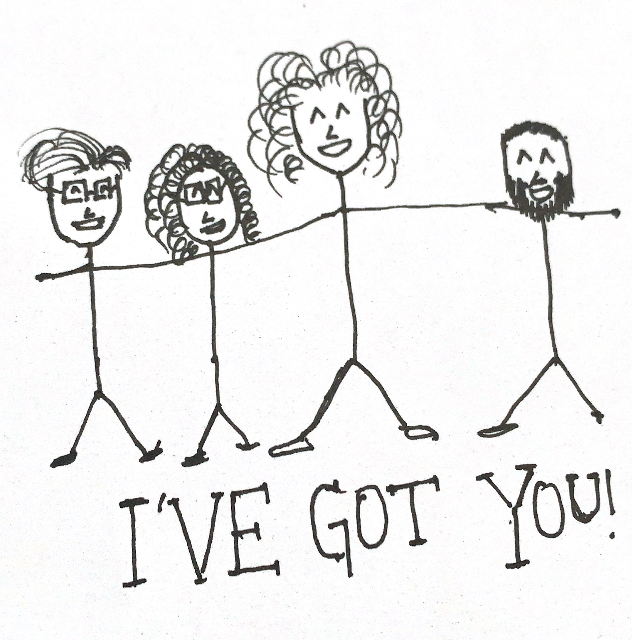 I'VE GOT YOU!